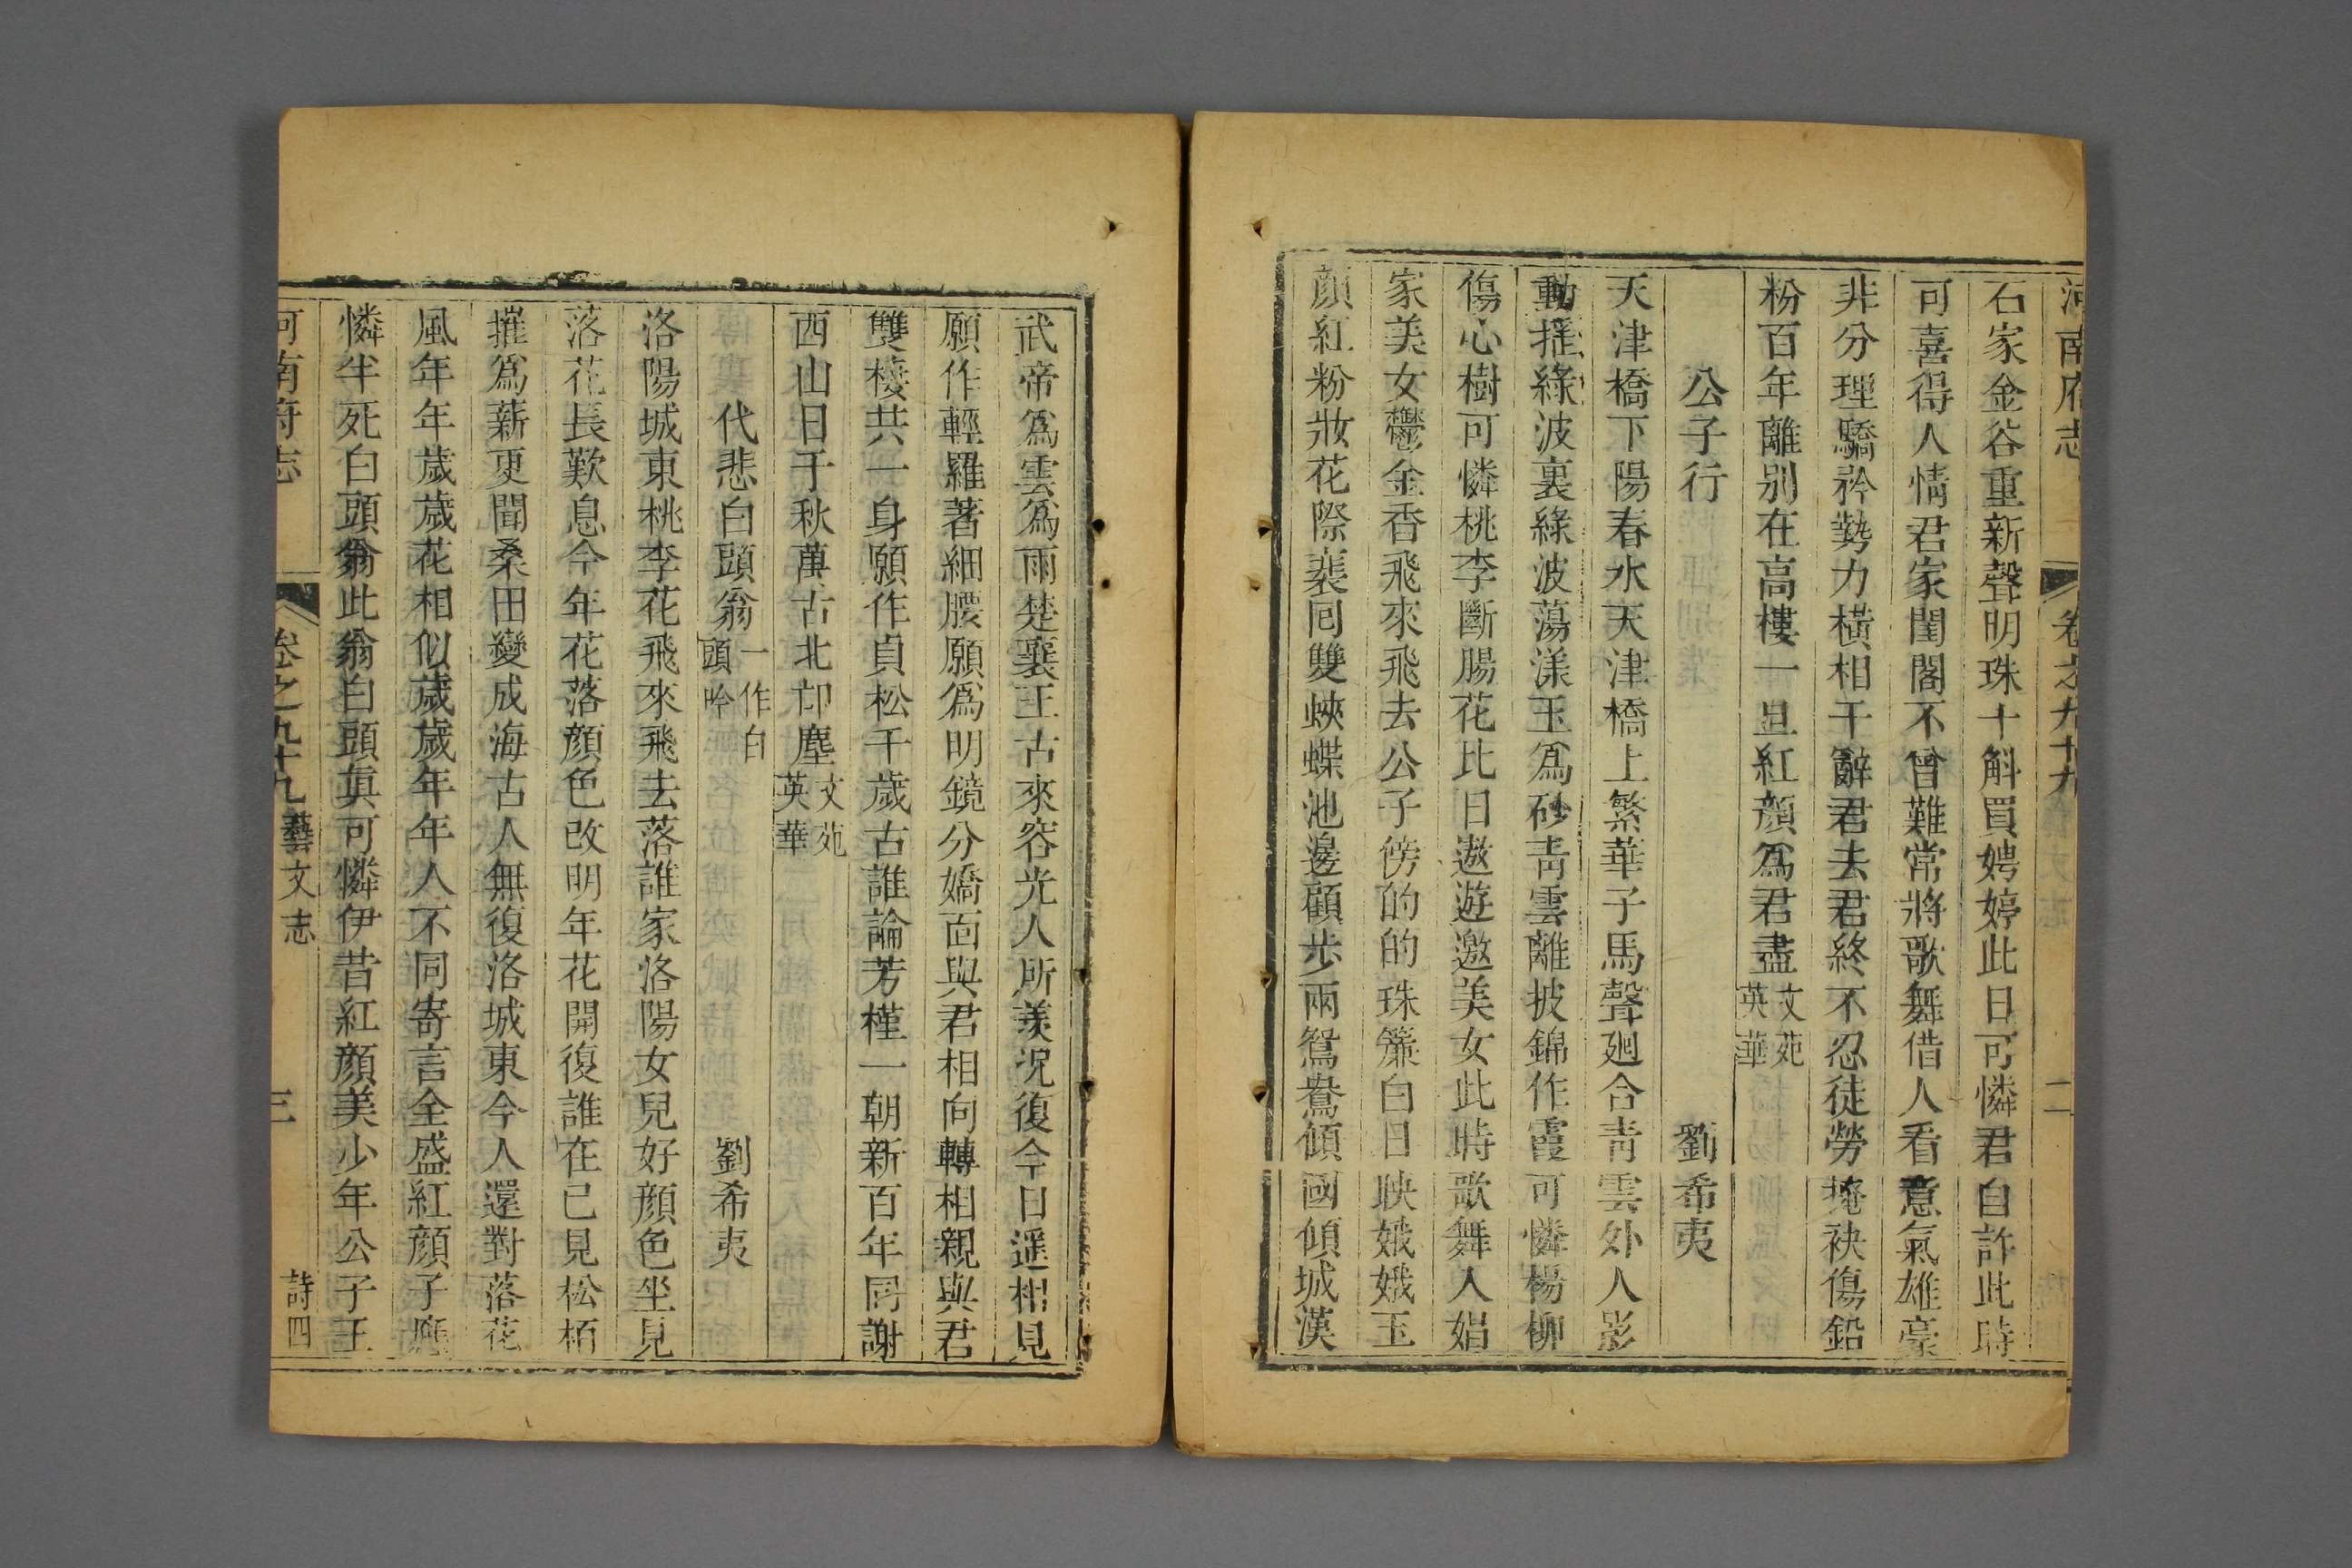 河南府志 卷之九十九 二
石家金谷重新聲明珠十斛買娉婷此日可憐君自許此時
可喜得人情君家閨閣不曾難常將歌舞借人看意氣雄豪
非分理驕矜勢力橫相干辭君去君終不忍徒勞掩袂傷鉛
粉百年離別在高樓一旦紅顏爲君盡文苑英華
公子行 劉希夷
天津橋下陽春水天津橋上繁華子馬聲廻合靑雲外人影
動搖綠波裏綠波蕩漾玉爲砂靑雲離披錦作霞可憐楊柳
傷心樹可憐桃李斷腸花比日遨遊邀美女此時歌舞人娼
家美女鬱金香飛來飛去公子傍的的珠簾白日映娥娥玉
顏紅粉妝花際裴回雙蛺蝶池邊顧步兩鴛鴦傾國傾城漢
武帝爲雲爲雨楚襄王古來容光人所羨況復今日遥相見
願作輕羅著細腰願爲明鏡分嬌面與君相向轉相親與君
雙棲共一身願作貞松千歲古誰論芳槿一朝新百年同謝
西山日千秋萬古北邙塵文苑英華
代悲白頭翁一作白頭吟 劉希夷
洛陽城東桃李花飛來飛去落誰家洛陽女兒好顏色坐見
落花長歎息今年花落顏色改明年花開復誰在已見松栢
摧爲薪更聞桑田變成海古人無復洛城東今人還對落花
風年年歲歲花相似歲歲年年人不同寄言全盛紅顏子應
憐半死白頭翁此翁白頭眞可憐伊昔紅顏美少年公子王
河南府志 卷之九十九 藝文志 三 詩四